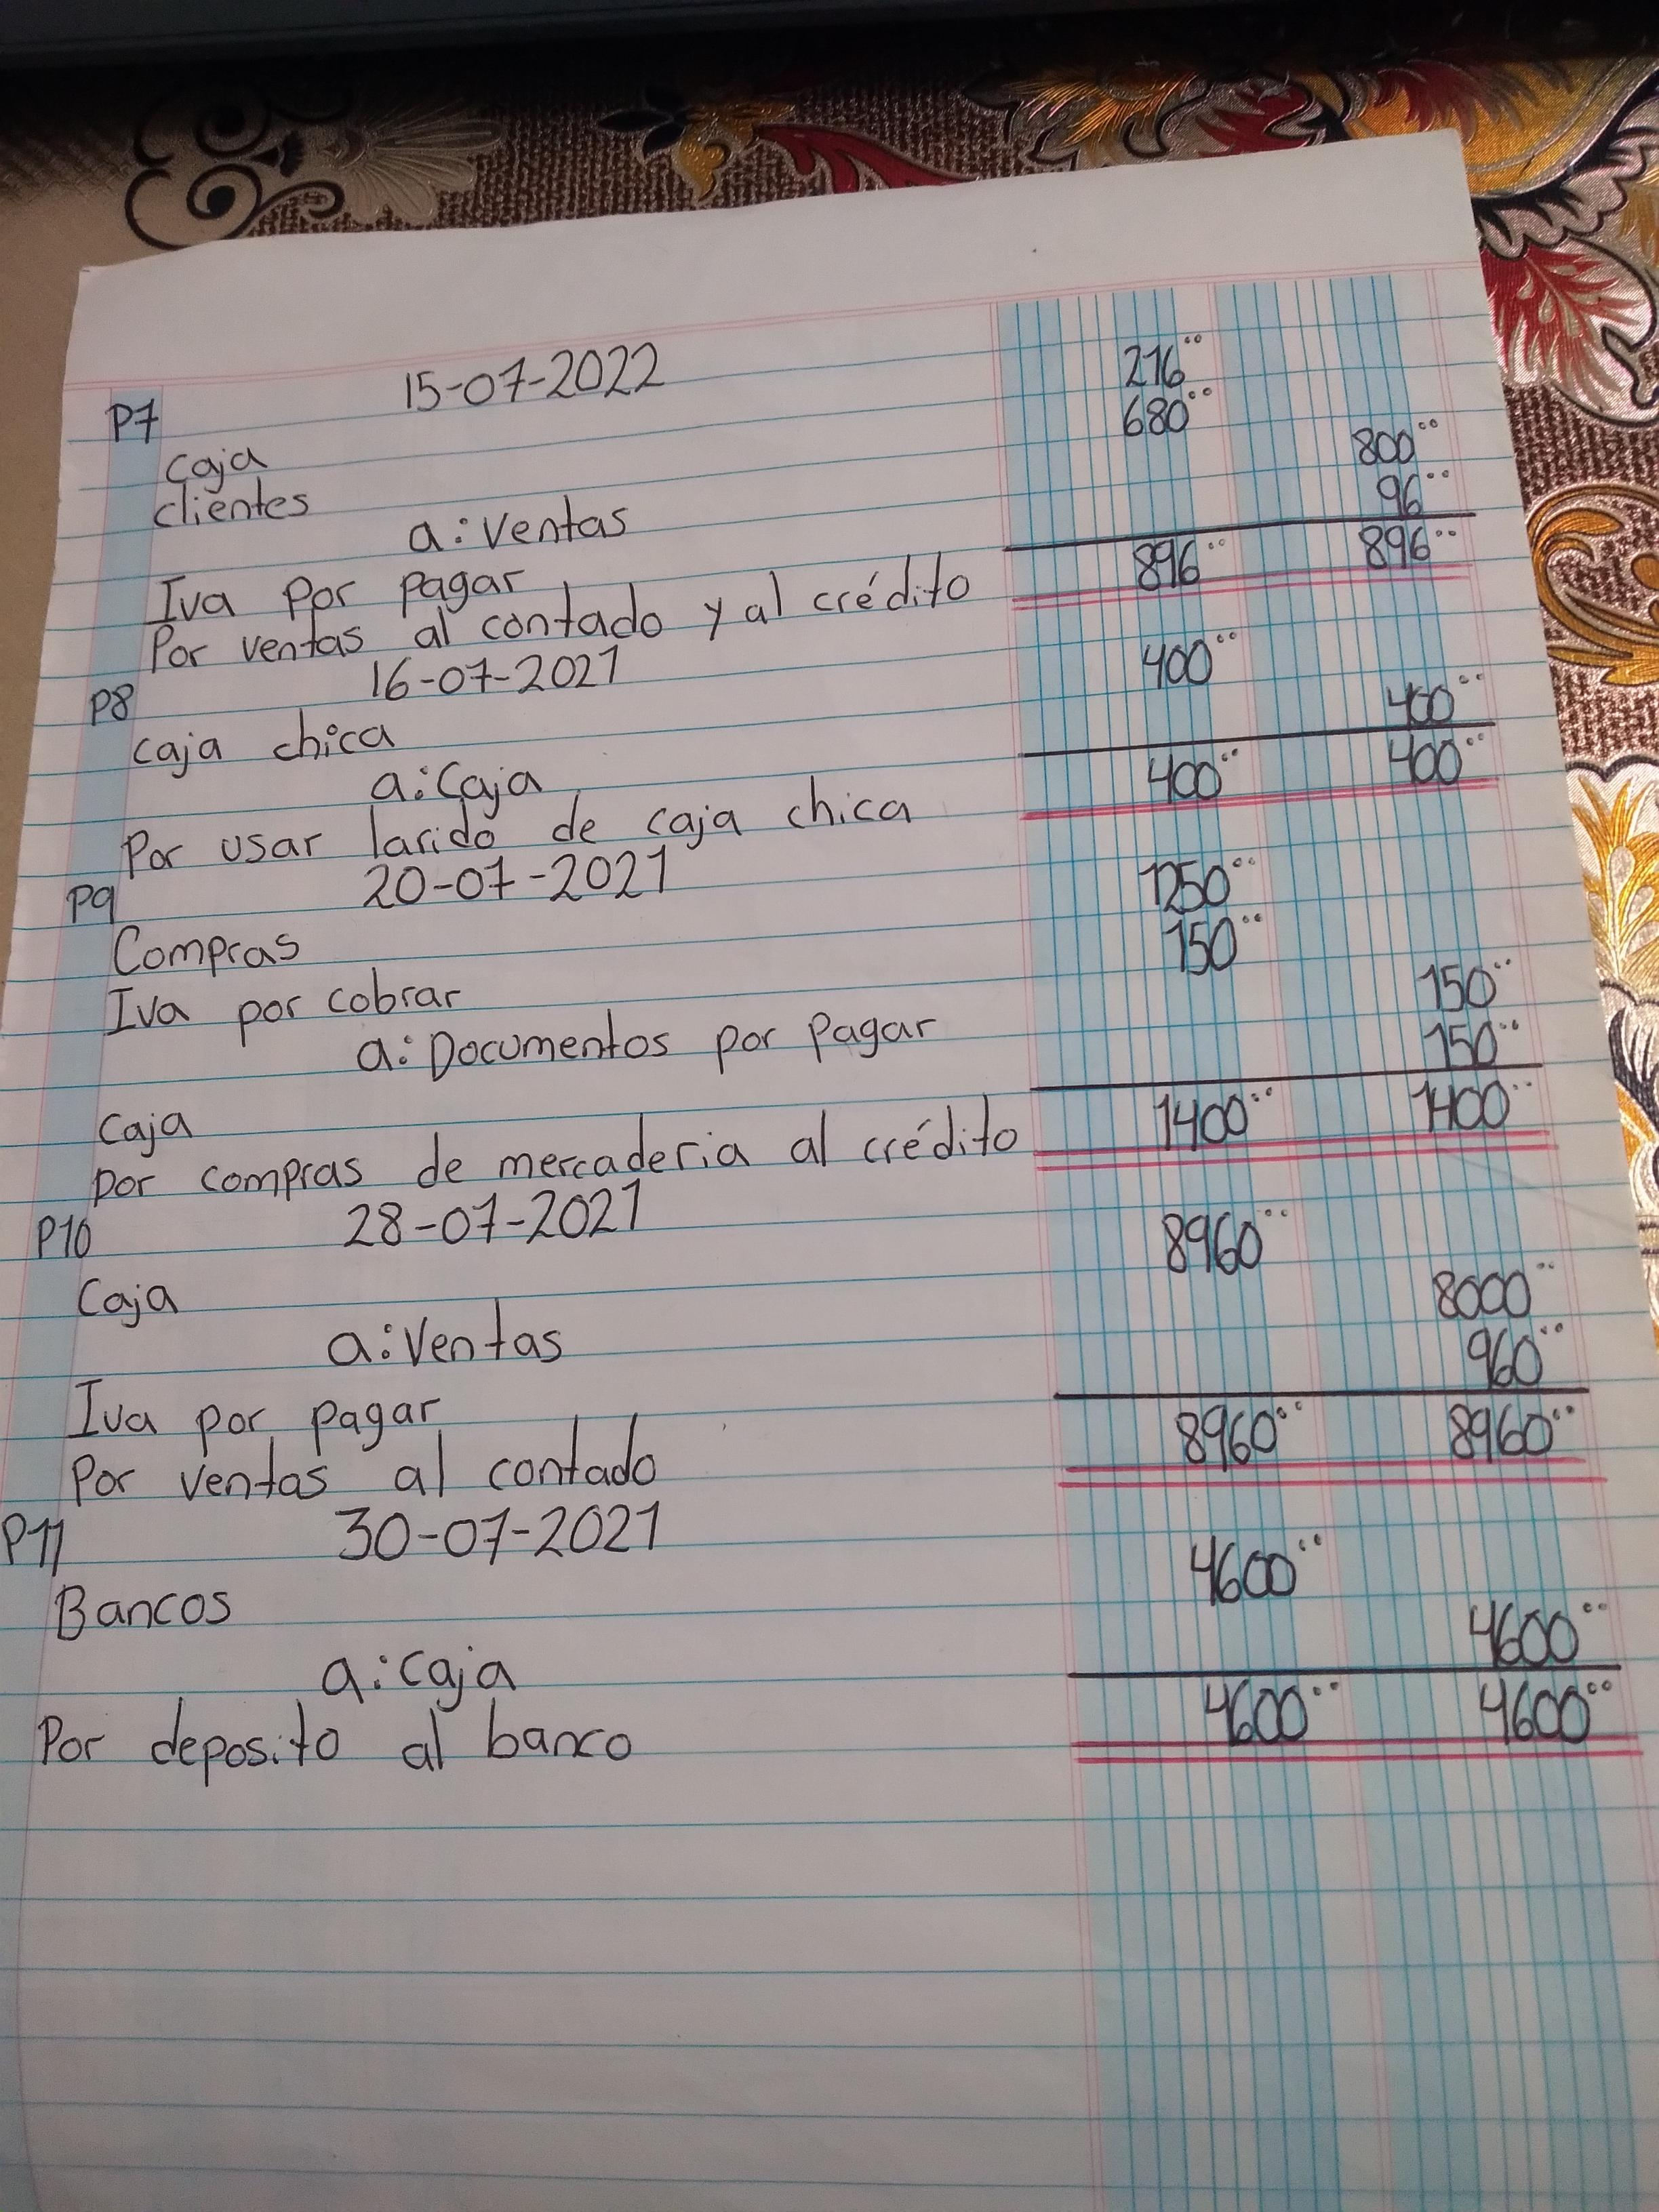 P7 15-07-2022
Caja 216°°
clientes 680°°
a: Ventas 800°°
Iva Por pagar 96°°
Por ventas al contado y al crédito 896°° 896°°
P8 16-07-2021
caja chica 400°°
a: Caja 400°°
Por usar larido de caja chica 400°° 400°°
P9 20-07-2021
Compras 1250°°
Iva por cobrar 150°°
a: Documentos por Pagar 150°°
Caja 150°°
por compras de mercaderia al crédito 1400°° 1400°°
P10 28-07-2021
Caja 8960°°
a: Ventas 8000°°
Iva por pagar 960°°
Por ventas al contado 8960°° 8960°°
P11 30-07-2021
Bancos 4600°°
a: Caja 4600°°
Por deposito al banco 4600°° 4600°°